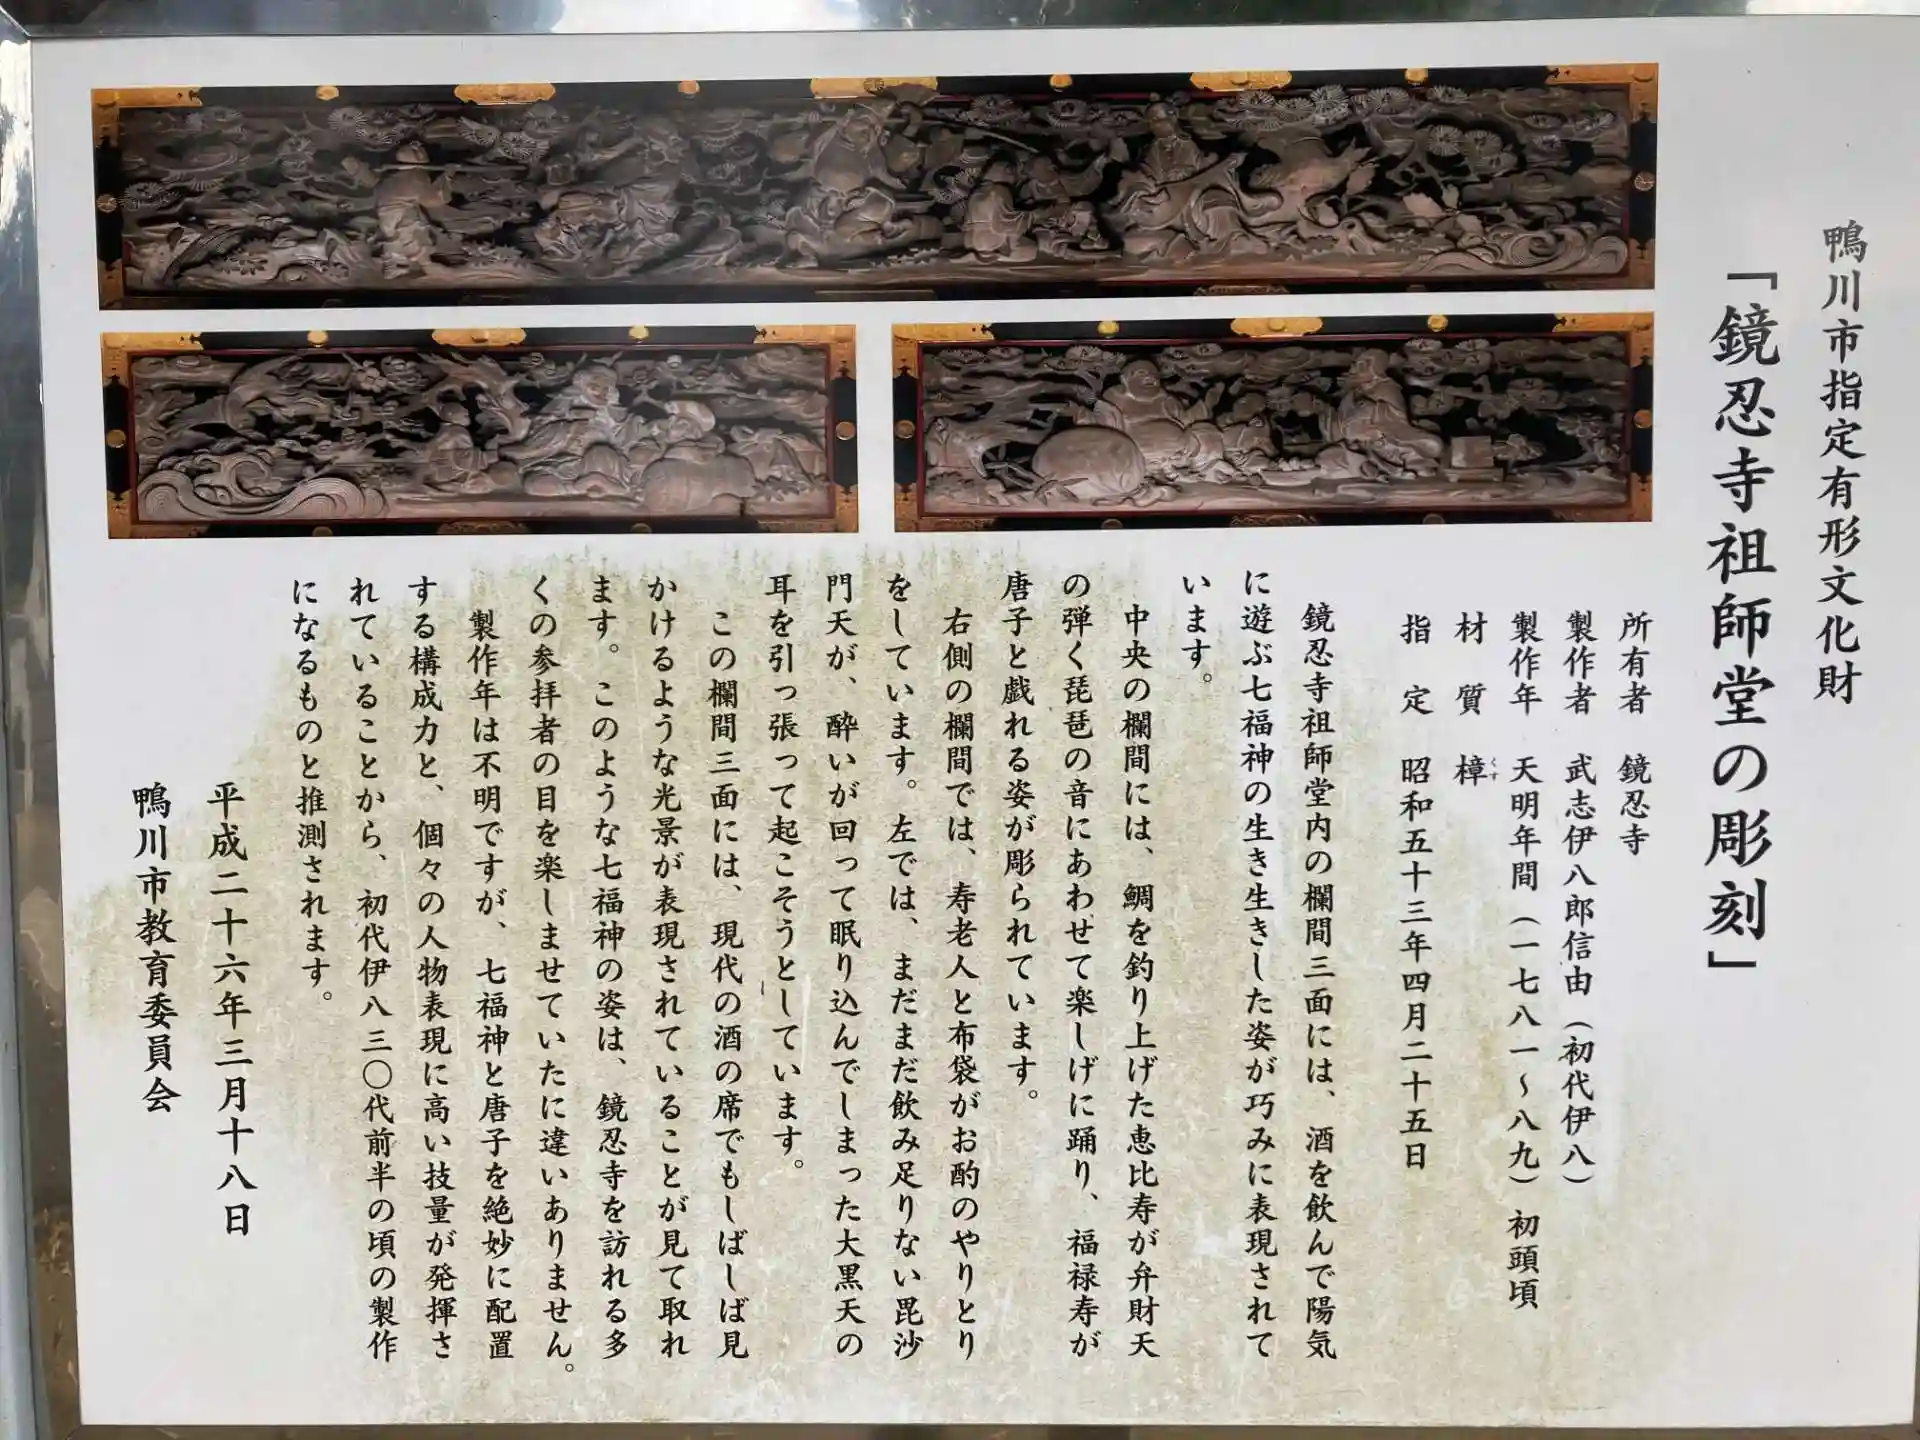 鴨川市指定有形文化財
「鏡忍寺祖師堂の彫刻」
所有者 鏡忍寺
製作者 武志伊八郎信由(初代伊八)
製作年 天明年間(一七八一～八九)初頭頃
材質 樟
くす
指定 昭和五十三年四月二十五日
鏡忍寺祖師堂内の欄間三面には、酒を飲んで陽気
に遊ぶ七福神の生き生きした姿が巧みに表現されて
います。
中央の欄間には、鯛を釣り上げた恵比寿が弁財天
の弾く琵琶の音にあわせて楽しげに踊り、福禄寿が
唐子と戯れる姿が彫られています。
右側の欄間では、寿老人と布袋がお酌のやりとり
をしています。左では、まだまだ飲み足りない毘沙
門天が、酔いが回って眠り込んでしまった大黒天の
耳を引っ張って起こそうとしています。
この欄間三面には、現代の酒の席でもしばしば見
かけるような光景が表現されていることが見て取れ
ます。このような七福神の姿は、鏡忍寺を訪れる多
くの参拝者の目を楽しませていたに違いありません。
製作年は不明ですが、七福神と唐子を絶妙に配置
する構成力と、個々の人物表現に高い技量が発揮さ
れていることから、初代伊八三〇代前半の頃の製作
になるものと推測されます。
平成二十六年三月十八日
鴨川市教育委員会